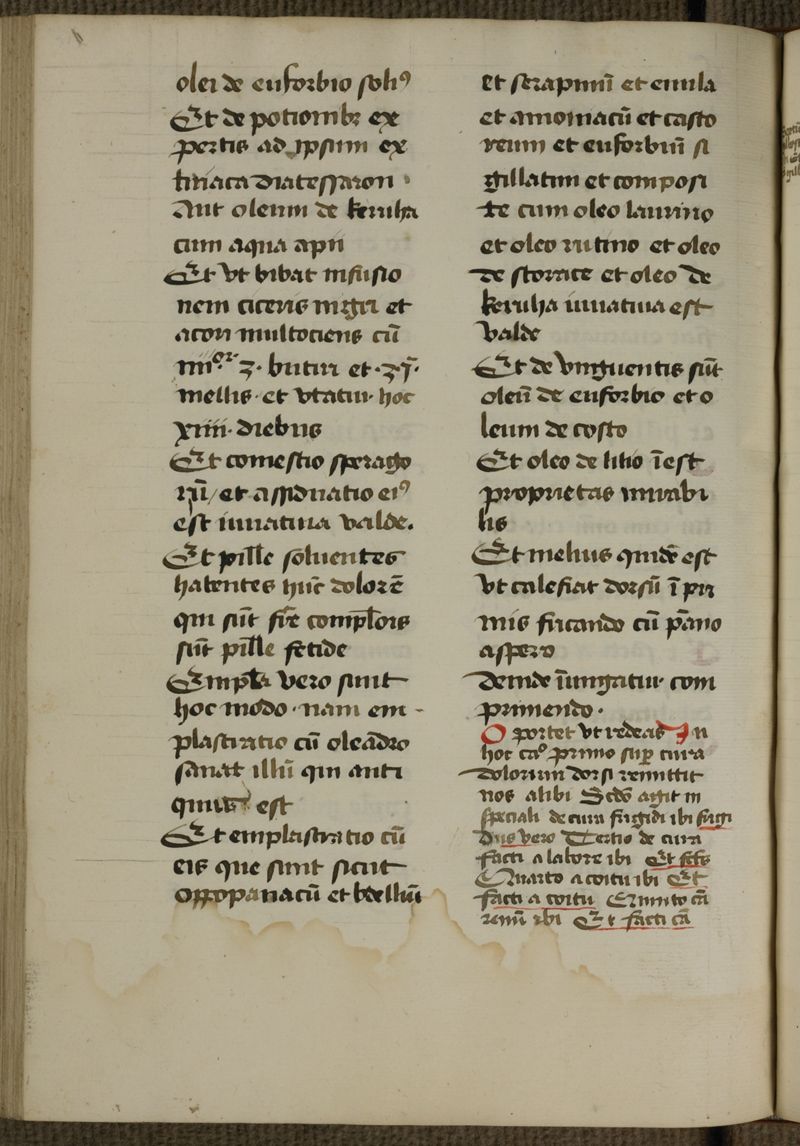 olei de euforbio soliꝰ
Et de potionibꝫ ex
pertis ad ipsum ex
tiriaca diatessaron
Aut oleum de keruha
cum aqua apii
Et vt bibat infusio
nem ciceris nigri et
acori multociens cū
butiri et
mellis et vtatur hoc
xiiii diebus
Et comestio sperago
rū et assiduatio eiꝰ
est iuuatiua valde.
Et pille soluentes
habentes hūc dolorē
qui sūt
sūt pille fetide
Empla vero sunt
hoc modo nam em
plastratio cū oleādro
sanat illū qui anti
quus est
Et emplastratio cū
eis que sunt sicut
oppopanacū et bdelliū
et serapinū et enula
et amoniacū et casto
reum et euforbiū si
gillatim et composi
te cum oleo laurino
et oleo rutino et oleo
de storace et oleo de
keruha iuuatiua est
valde
Et de vnguentis sūt
oleū de euforbio et o
leum de costo
Et oleo de lilio īest
proprietas mirabi
lis
Et melius quidē est
vt calefiat dorsū ī pri
mis fricando cū pāno
aspero
deinde īungatur com
primendo
Oportet vt redeas In
hoc caᵒ primo suꝑ cura
dolorum dorsi remittit
nos alibi Scdo agit in
speciali de cura frigidi ibi frigi
dus vero Tertio de cura
facti a labore ibi Et
Quarto a coitu ibi Et
facti a coitu Quinto cā
renū ibi Et facti cā